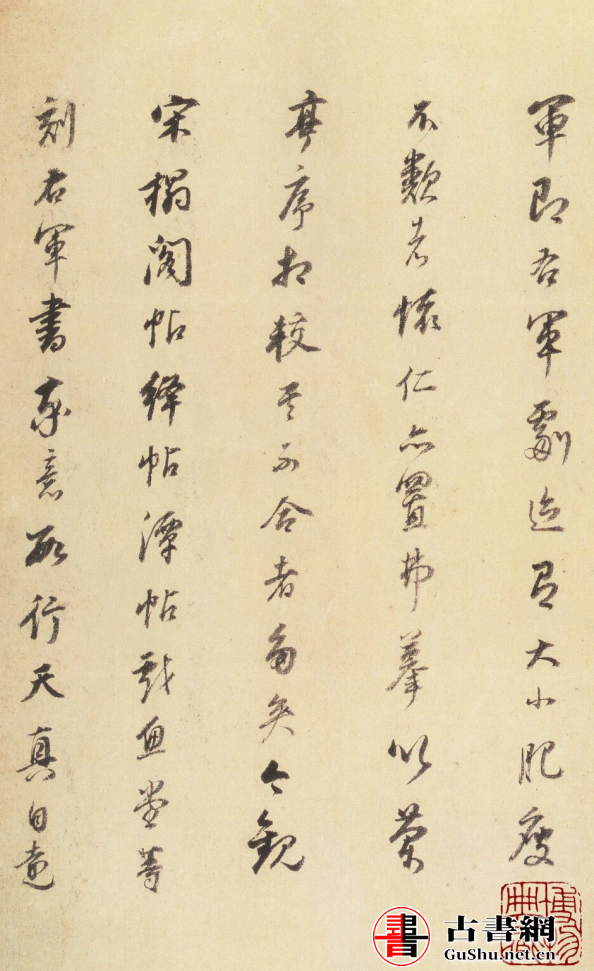 軍即右軍劇迹有大小肥瘦
不類者懷仁亦置弗摹以蘭
亭序相較其不合者多矣今觀
宋榻閣帖絳帖潭帖戲魚堂等
刻右軍書率意好行天真自遠
古書網
GuShu.net.cn